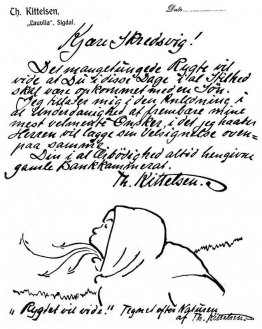 Th. Kittelsen,
"Lauvlia", Sigdal.
Dato
Kjære Skredsvig!
Det mangetungede Rygte vil
vide at Du i disse Dage i al Stilhed
skal være opkommet med en Søn.
Jeg tillater mig i den Anledning i
al Underdanighed at frembære mine
mest velmente Ønsker, i det jeg haaber
Herren vil lægge sin Velsignelse oven-
paa samme.
Din i al Ærbødighed altid hengivne
gamle Bankkammerat.
Th. Kittelsen.
"Rygtet vil vide." Tegnet efter Naturen
af Th. Kittelsen.